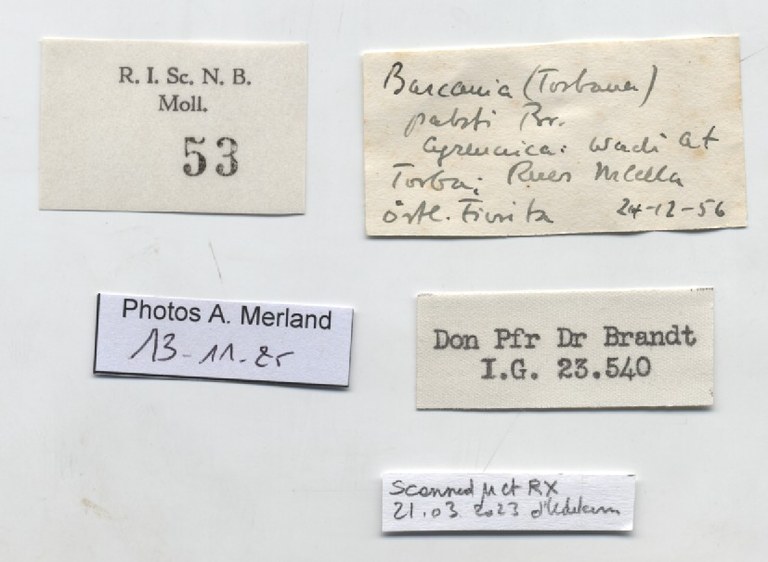 R. I. Sc. N. B.
Moll.
53
Barcania (Torbana)
pabsti Br.
Cyrenaica: Wadi at
Torba;
östl. Fiorita 24-12-56
Photos A. Merland
13-11-25
Don Pfr Dr Brandt
I.G. 23.540
Scanned µct RX
21.03 2023